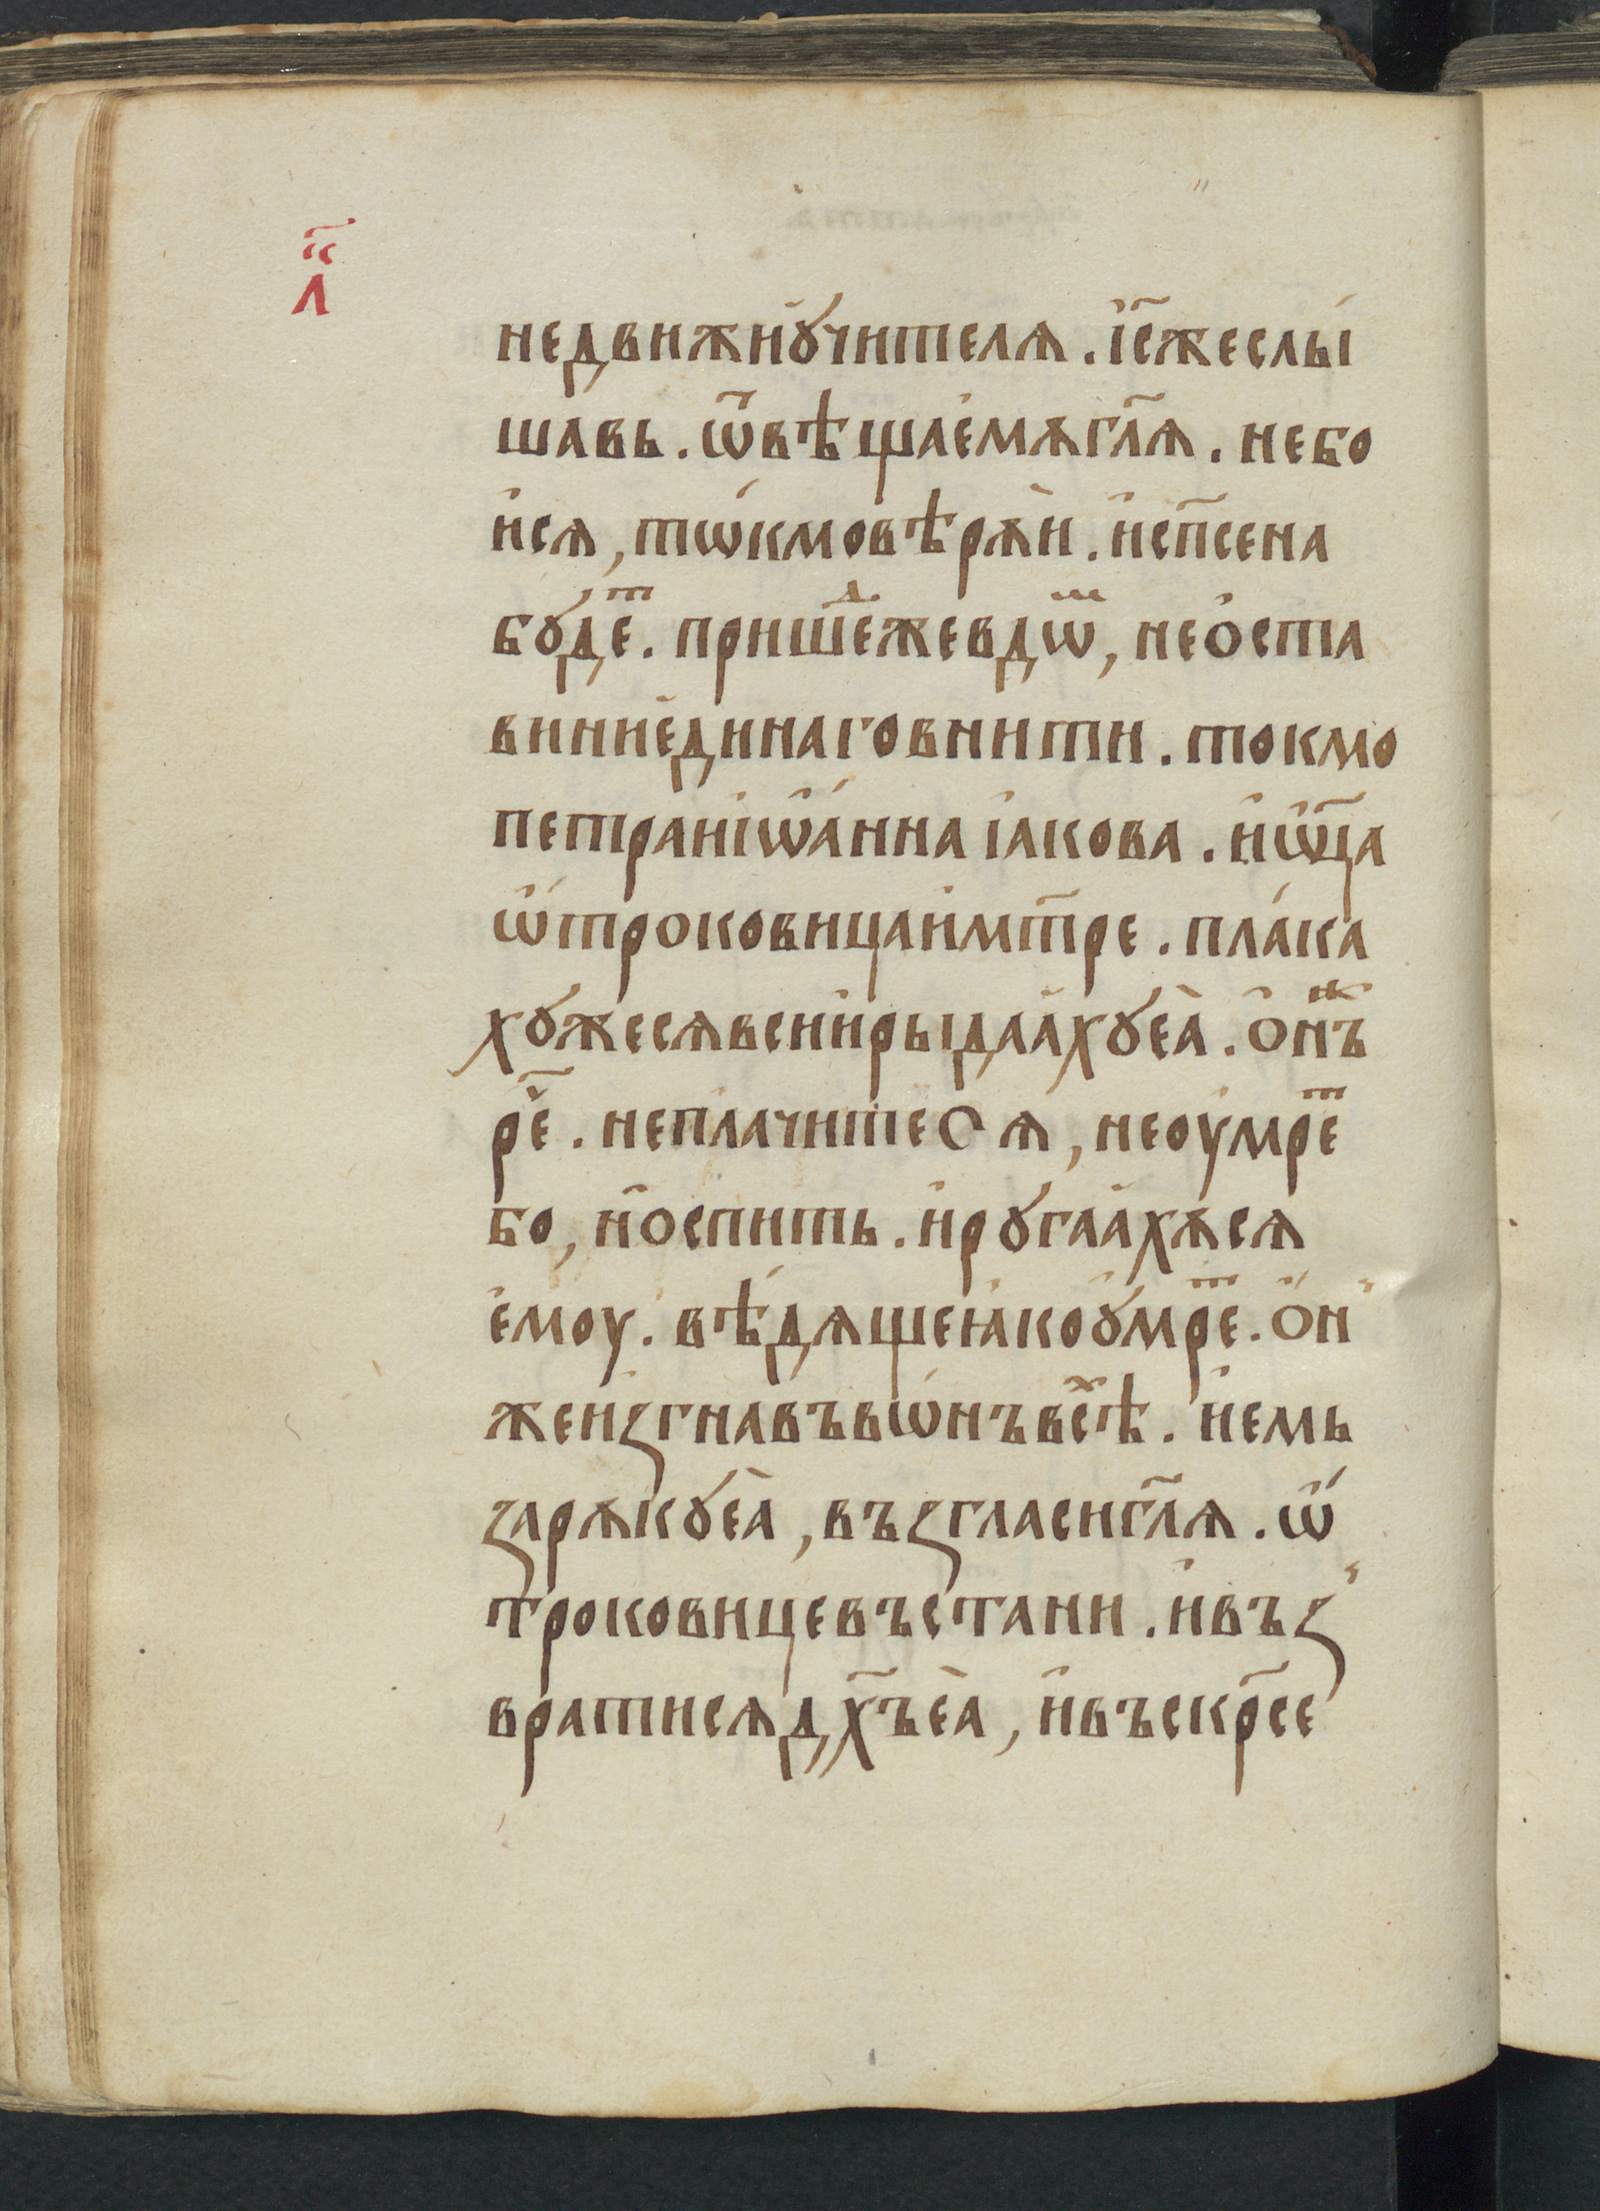 л҃с
недвижиꙋчителѧ . і҆с҃жеслы
шавь . ѿвѣщаемѫгл҃ѧ . небо
исѧ , тѡ́кмовѣрѫи . исп҃сена
бꙋ́деⷮ . пришеⷣжевдѡⷨ , нео҆ста
виниединаговнити . токмо
петраниіѡа́нна іакова . иѡ҆ц҃а
ѡ҆троковицаим҃тре . пла́ка
хꙋжесѧвсиирыдаахꙋеа̀ . о҆нъⷤ
реⷱ҇ . неплачитесѧ , неоумреⷮ
бо , нѡспить . ирꙋгаахѫсѧ
емоу . вѣ́дѧщеꙗкоꙋмреⷮ . о҆н
жеизгнавъвѡ́нъвсѣⷯ . иемь
зарѫкꙋеа̀ , възгласигл҃ѧ . ѡ҆
троковицевъстани . ивъз
вратисѧдх҃ъеа̀ , ивъскр҃се